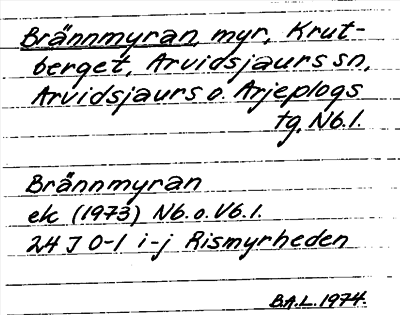 Brännmyran, myr, Krut-
berget, Arvidsjaurs sn,
Arvidsjaurs o. Arjeplogs
tg, Nb.l.
Brännmyran
ek (1973) Nb.o.Vb.l.
24 J 0-1 i-j Rismyrheden
B.A.L.1974.